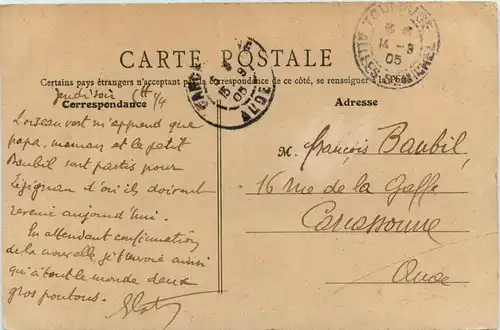 CARTE POSTALE
Certains pays étrangers n'acceptant pas la correspondance de ce côté, se renseigner à la Poste
Correspondance
Adresse
Jeudi soir 6h 1/4
L'oiseau vert m'apprend que
papa, maman et le petit
Baubil sont partis pour
Lézignan d'où ils doivent
revenir aujourd'hui.
En attendant confirmation
de la nouvelle, je t'envoie ainsi
qu'à tout le monde deux
gros poutous.
M. François Baubil
16 rue de la Gaffe
Carcassonne
Aude
TOULOUSE
14 - 9
05
15 9
05
AUDE